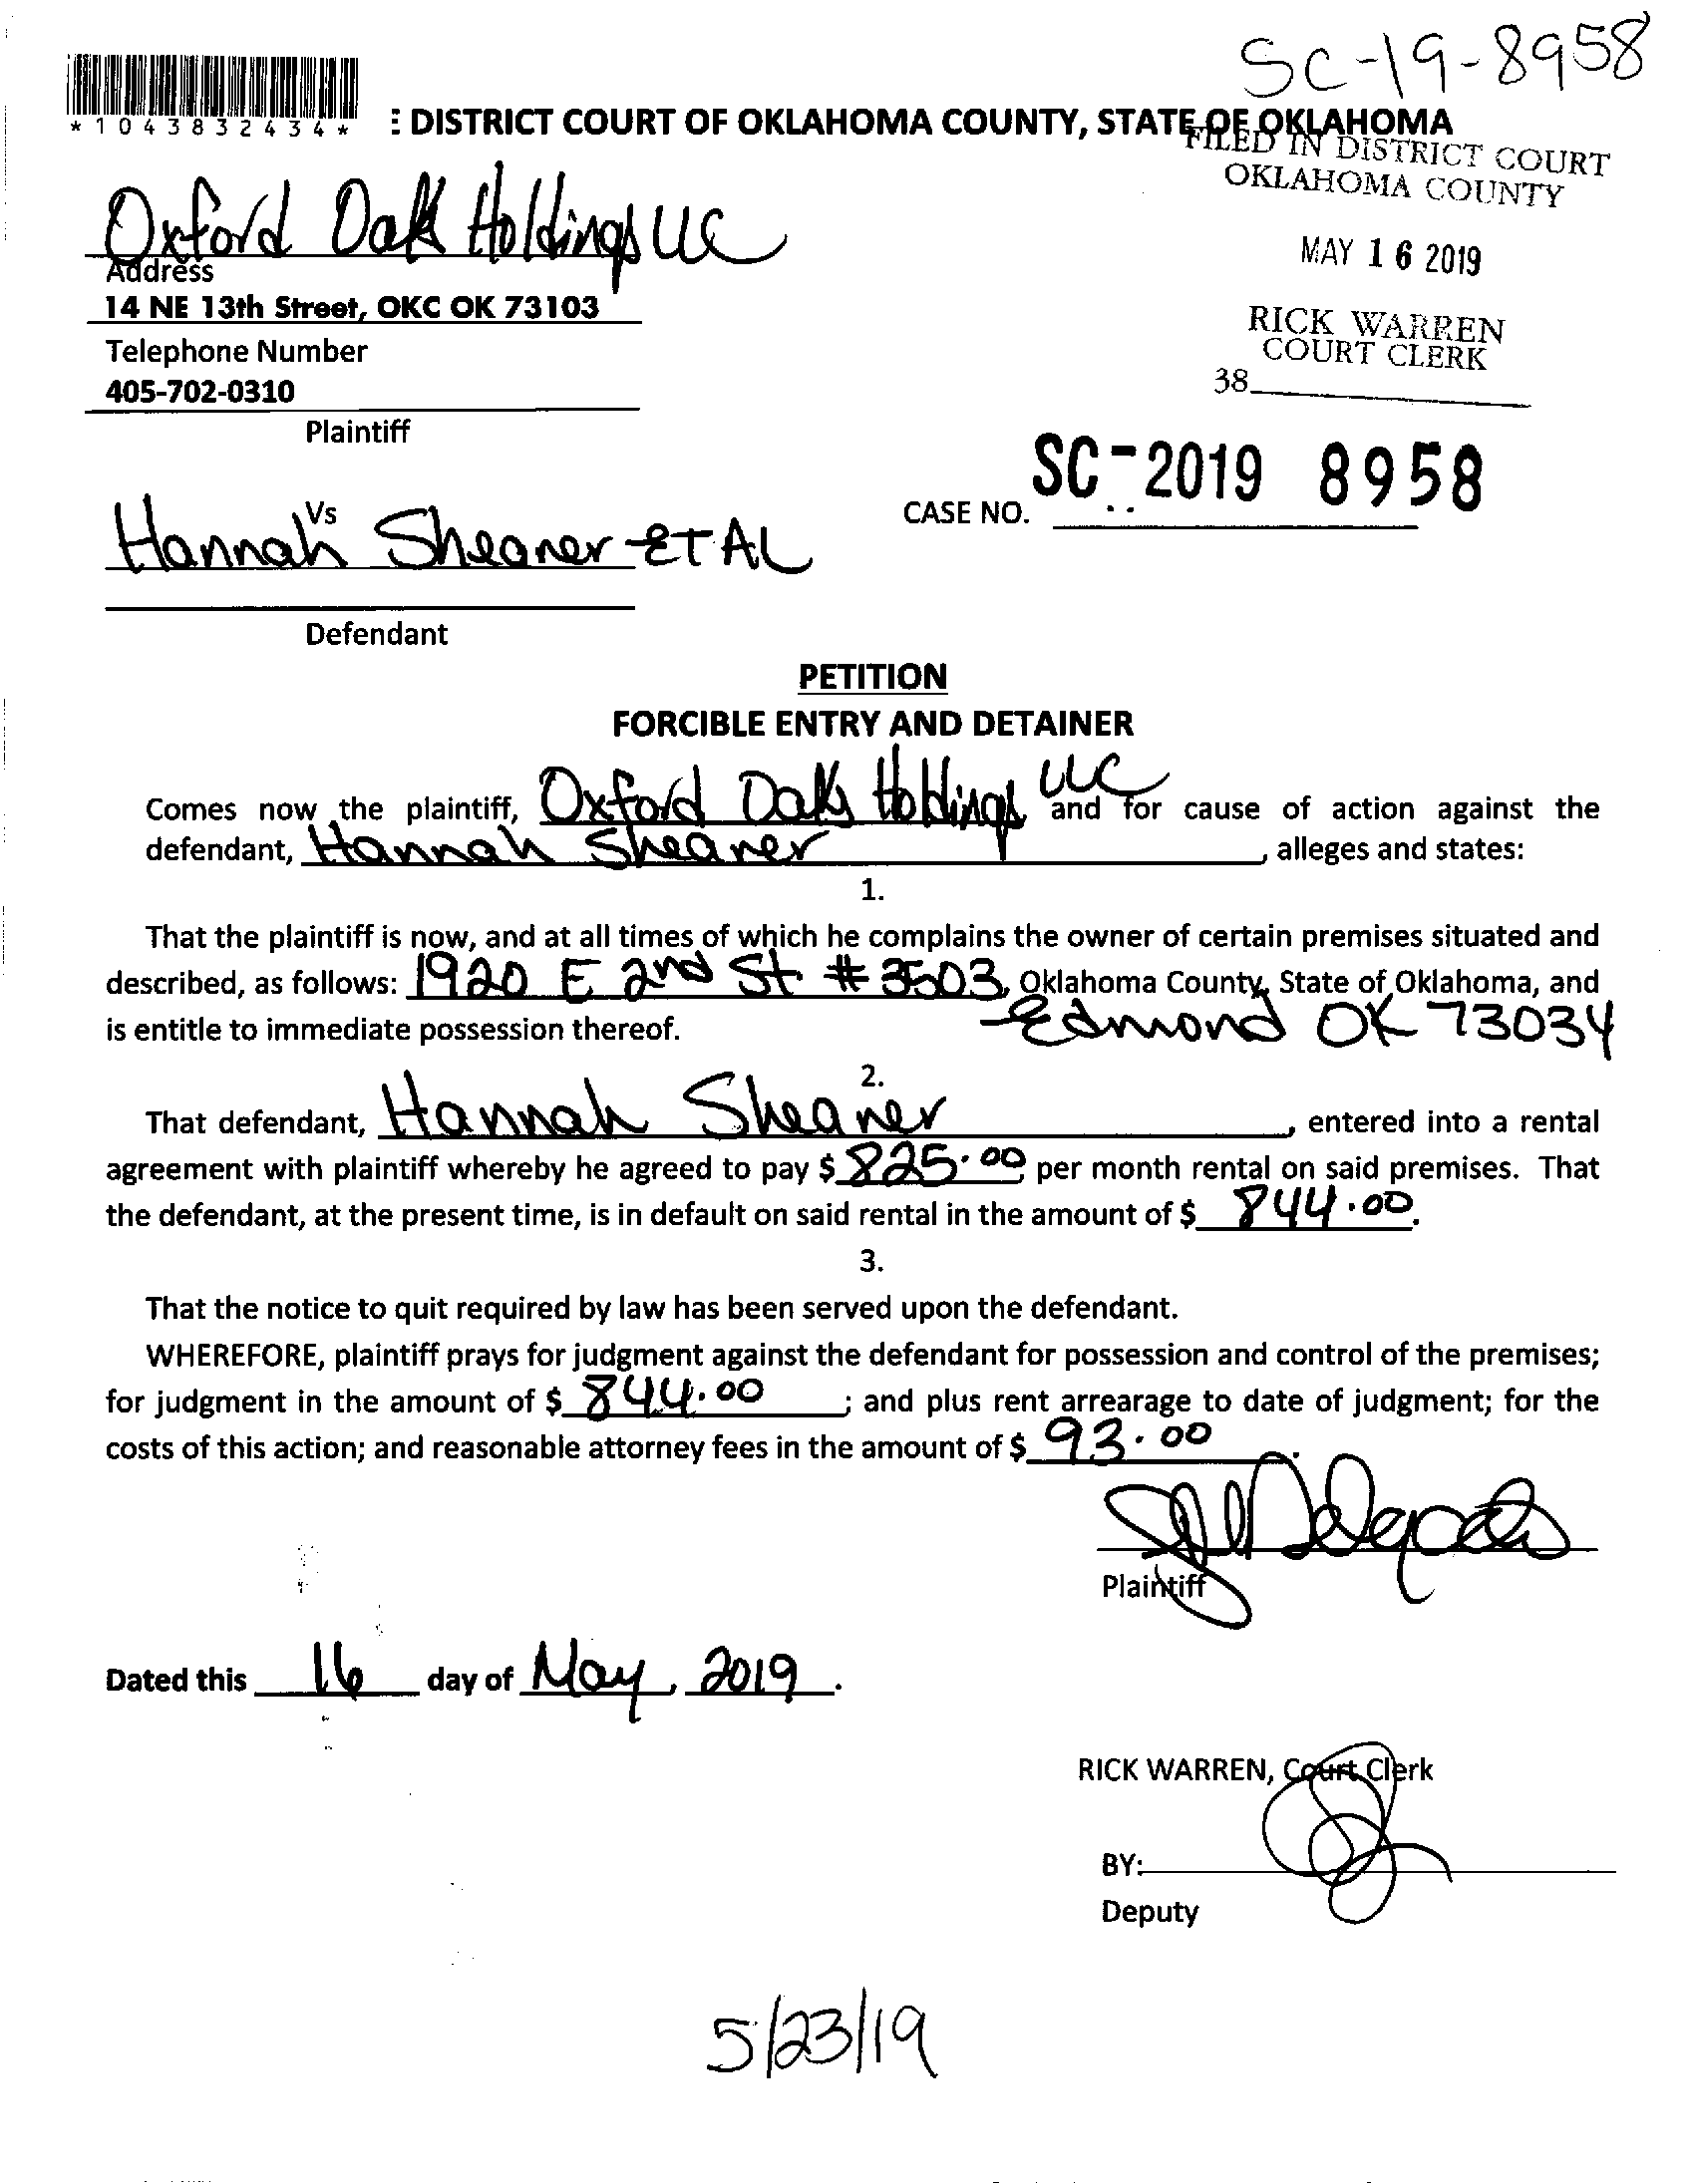 SC-19-8958
*1043832434*
E DISTRICT COURT OF OKLAHOMA COUNTY, STATE OF OKLAHOMA
FILED IN DISTRICT COURT
OKLAHOMA COUNTY
MAY 16 2019
RICK WARREN
COURT CLERK
38
Oxford Oak Holdings LLC
Address
14 NE 13th Street, OKC OK 73103
Telephone Number
405-702-0310
Plaintiff
Vs
CASE NO. SC-2019 8958
Hannah Shearer ET AL
Defendant
PETITION
FORCIBLE ENTRY AND DETAINER
Comes now the plaintiff, Oxford Oaks Holdings LLC and for cause of action against the
defendant, Hannah Shearer, alleges and states:
1.
That the plaintiff is now, and at all times of which he complains the owner of certain premises situated and
described, as follows: 1920 E 2nd St # 3503, Oklahoma County, State of Oklahoma, and
is entitle to immediate possession thereof. Edmond OK 73034
2.
That defendant, Hannah Shearer, entered into a rental
agreement with plaintiff whereby he agreed to pay $ 825.00 per month rental on said premises. That
the defendant, at the present time, is in default on said rental in the amount of $ 844.00.
3.
That the notice to quit required by law has been served upon the defendant.
WHEREFORE, plaintiff prays for judgment against the defendant for possession and control of the premises;
for judgment in the amount of $ 844.00 ; and plus rent arrearage to date of judgment; for the
costs of this action; and reasonable attorney fees in the amount of $ 93.00.
Plaintiff
Dated this 16 day of May, 2019.
RICK WARREN, Court Clerk
BY:
Deputy
5/23/19